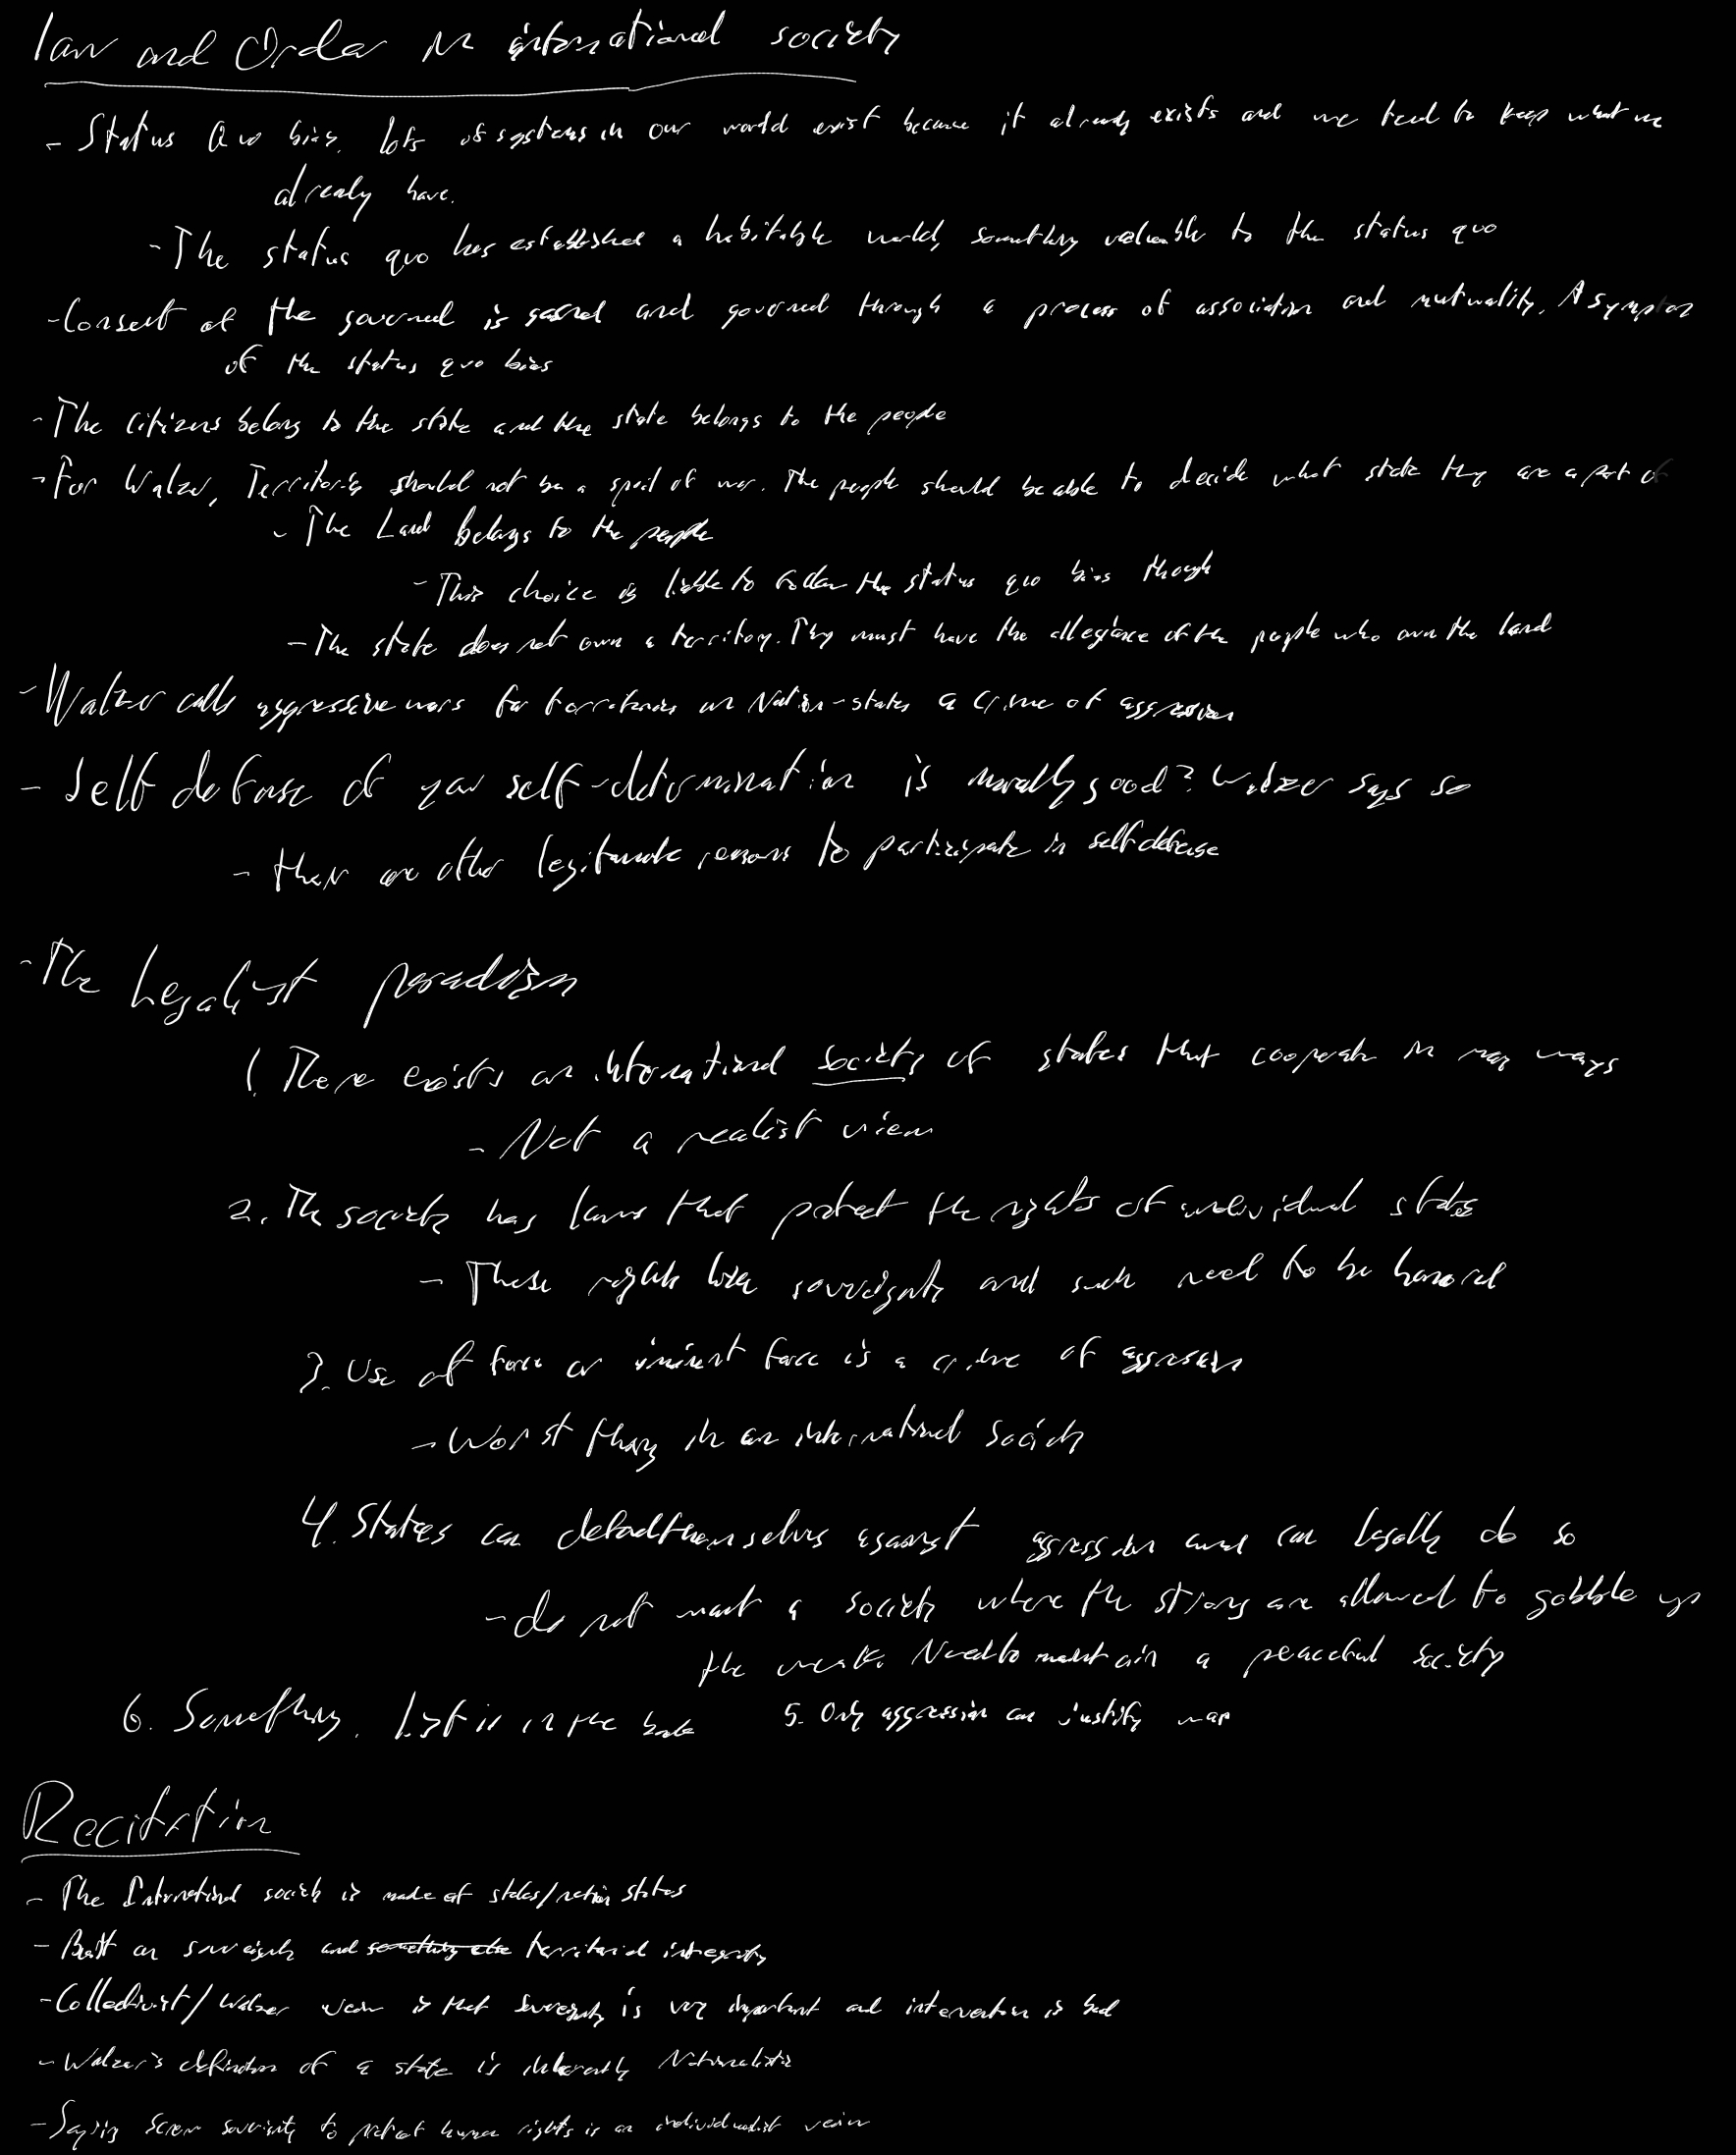 law and Order in international society
- Status Quo bias. lots of systems in our world exist because it already exists and we tend to keep what we
already have.
- The status quo has established a habitable world, something valuable to the status quo
- Consent of the governed is and governed through a process of association and mutuality. A symptom
of the status quo bias
- The citizens belong to the state and the state belongs to the people
- For Walzer, Territories should not be a spoil of war. The people should be able to decide what state they are a part of
- The Land belongs to the people
- This choice is liable to follow the status quo bias though
- The state does not own a territory. They must have the allegiance of the people who own the land
- Walzer calls aggressive wars for territories or Nation-states a crime of aggression
- Self defense of your self-determination is morally good? Walzer says so
- there are other legitimate reasons to participate in self defense
- The Legalist paradigm
1. There exists an international society of states that cooperate in many ways
- Not a realist view
2. The society has laws that protect the rights of individual states
- These rights like sovereignty and such need to be honored
3. Use of force or iminent force is a crime of aggression
- Worst thing in an international society
4. States can defend themselves against aggression and can legally do so
- do not want a society where the strong are allowed to gobble up
the weak. Need to maintain a peaceful society
6. Something. List is in the book 5. Only aggression can justify war
Recitation
- The International society is made of states/nation states
- Built on sovereignty and something else territorial integrity
- Collectivist/Walzer view is that Sovereignty is very important and intervention is bad
- Walzer's definition of a state is inherently Nationalistic
- Saying screw sovereignty to protect human rights is an individualist view